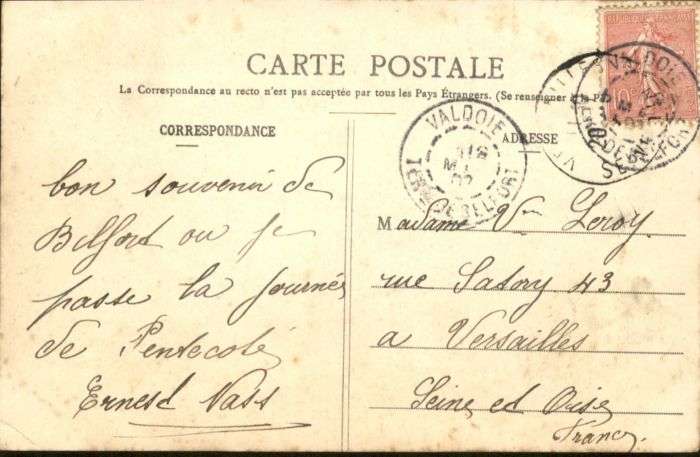 CARTE POSTALE
La Correspondance au recto n'est pas acceptée par tous les Pays Étrangers. (Se renseigner à la P
CORRESPONDANCE
ADRESSE
bon souvenir de
Belfort ou je
passe la journée
de Pentecoté
Ernesd Vass
Madame Vve Leroy
rue Satory 43
a Versailles
Seine et Oise
France
VALDOIE
TERRE DE BELFORT
10c